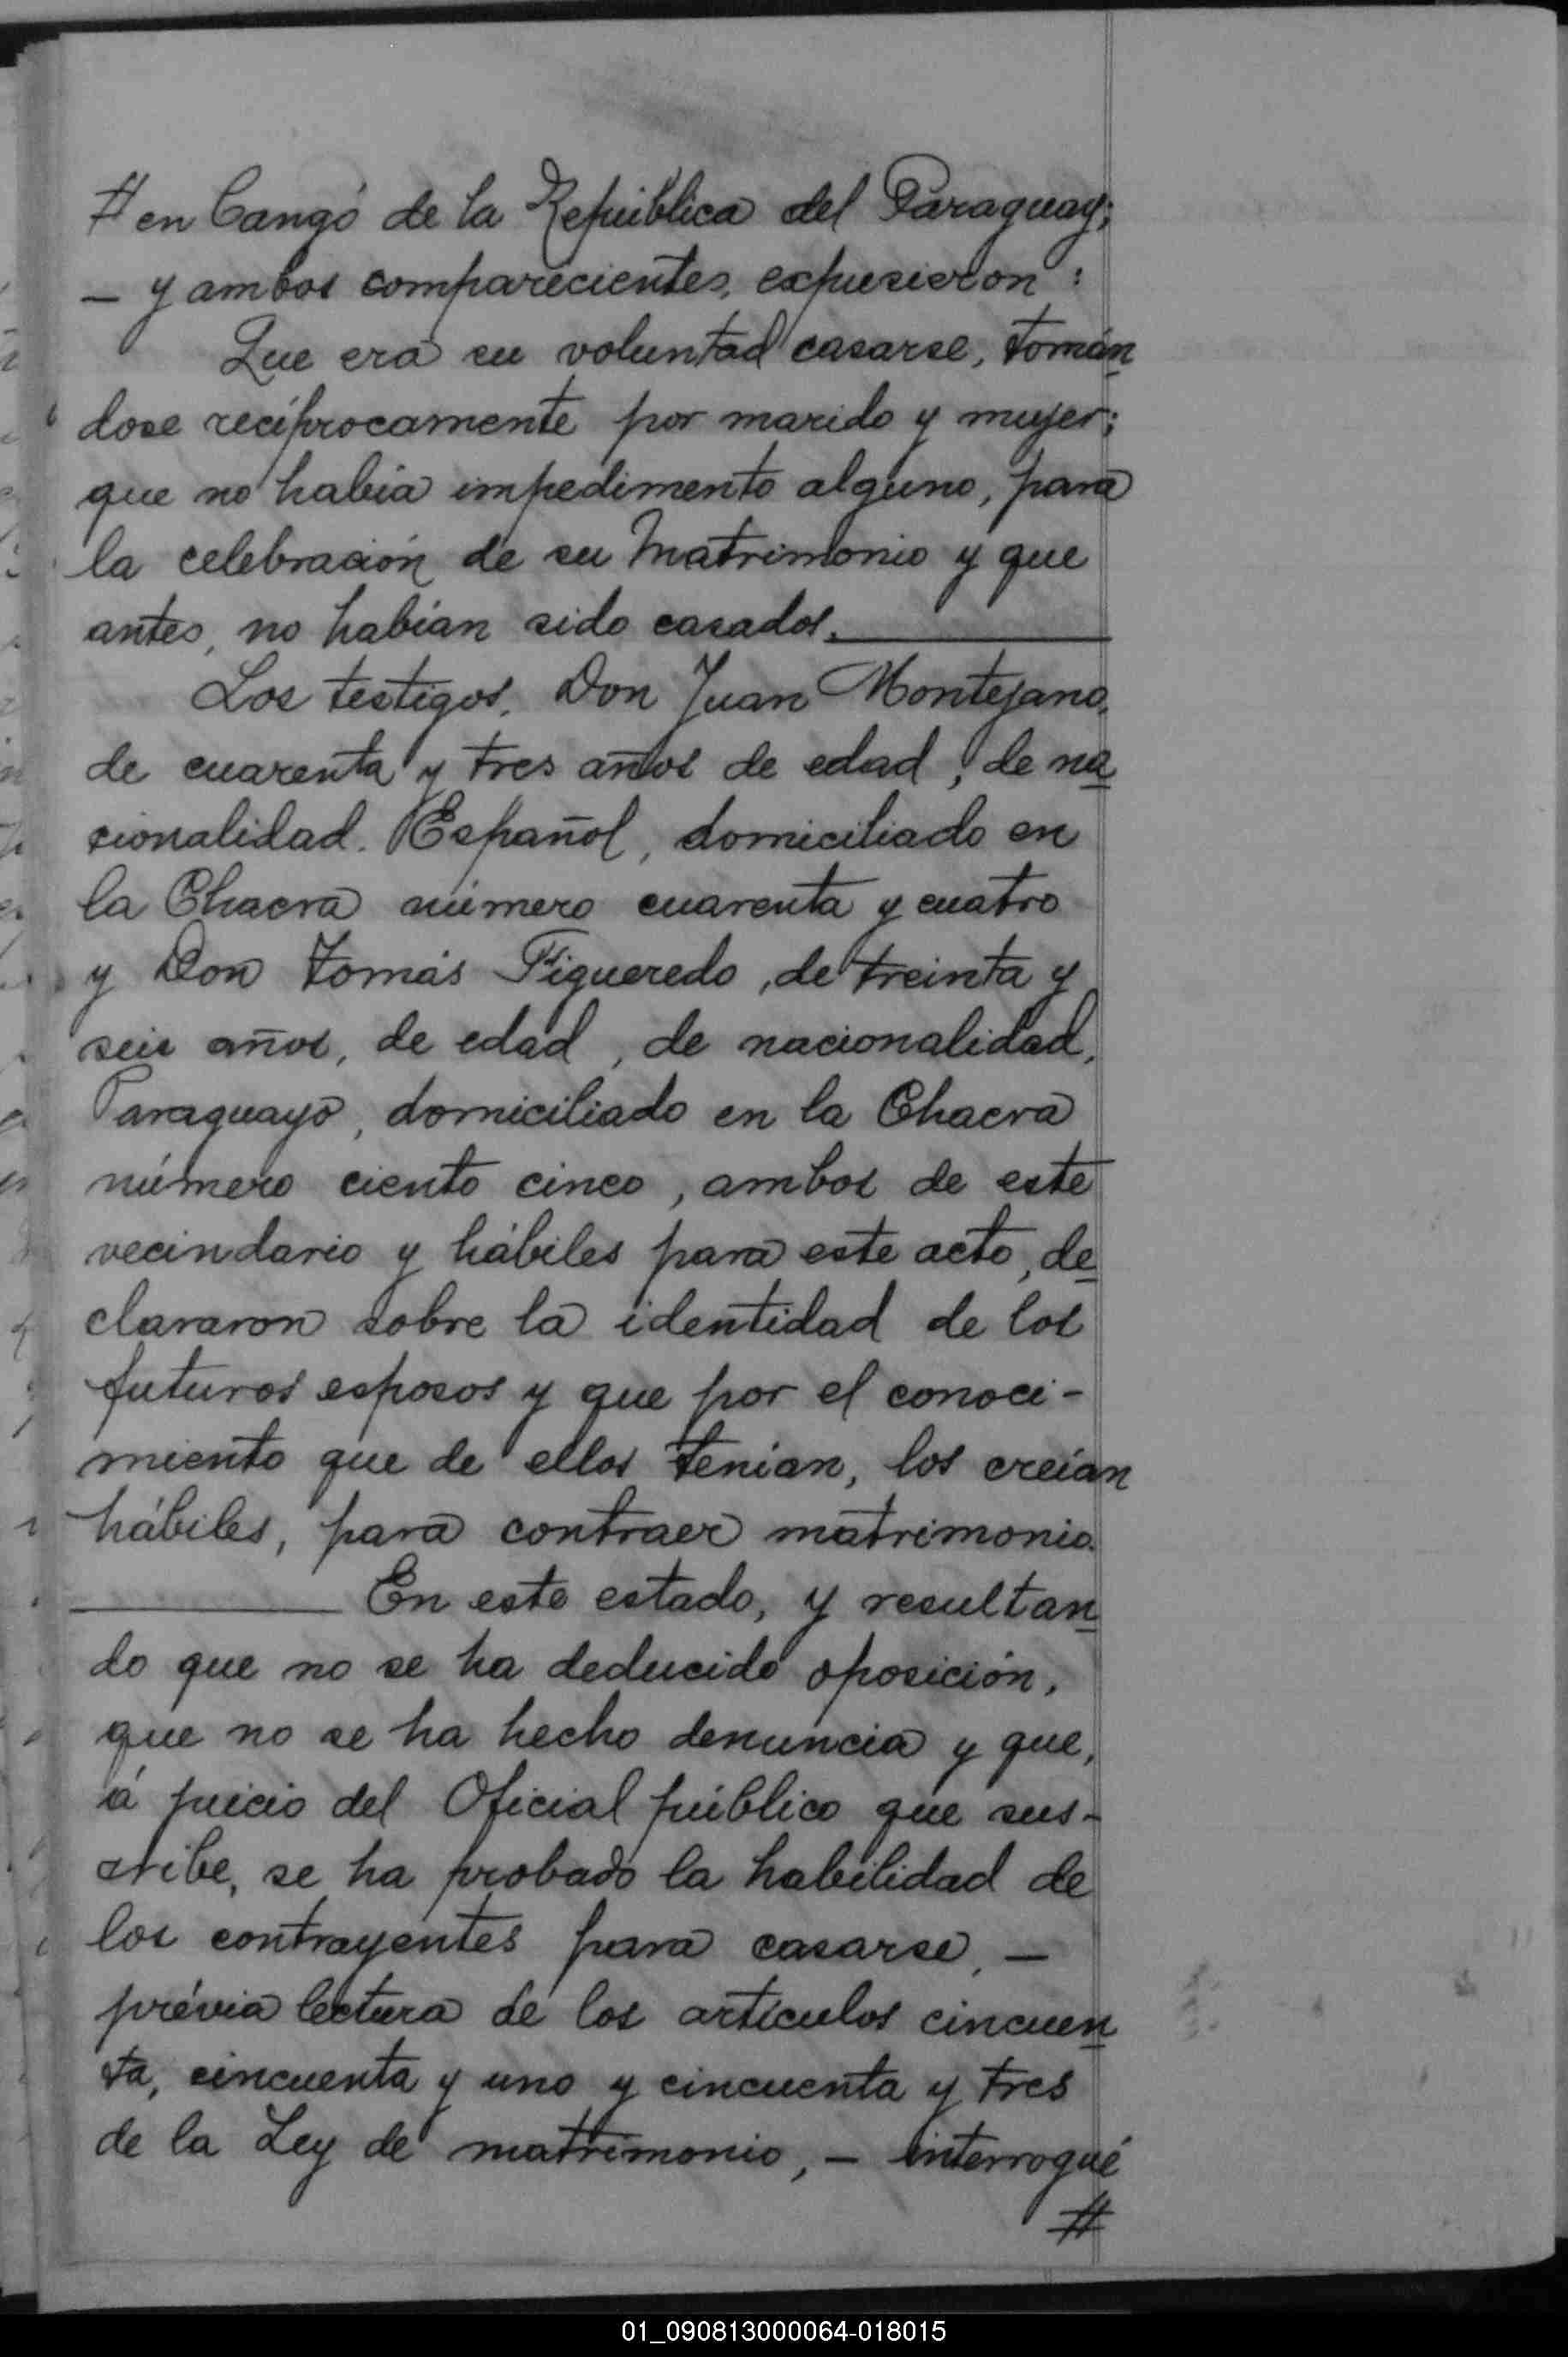 # en Cangó de la República del Paraguay;
— y ambos comparecientes, expusieron:
Que era su voluntad casarse, tomán
dose recíprocamente por marido y mujer;
que no había impedimento alguno, para
la celebración de su Matrimonio y que
antes, no habían sido casados.
Los testigos, Don Juan Montejano,
de cuarenta y tres años de edad, de na
cionalidad. Español, domiciliado en
la Chacra número cuarenta y cuatro
y Don Tomás Figueredo, de treinta y
seis años, de edad, de nacionalidad,
Paraguayo, domiciliado en la Chacra
número ciento cinco, ambos de este
vecindario y hábiles para este acto, de
clararon sobre la identidad de los
futuros esposos y que por el conoci-
miento que de ellos tenían, los creían
hábiles, para contraer matrimonio.
En este estado, y resultan
do que no se ha deducido oposición,
que no se ha hecho denuncia y que,
á juicio del Oficial público que sus-
cribe, se ha probado la habilidad de
los contrayentes para casarse, —
prévia lectura de los artículos cincuen
ta, cincuenta y uno y cincuenta y tres
de la Ley de matrimonio, — interrogué
#
01_090813000064-018015